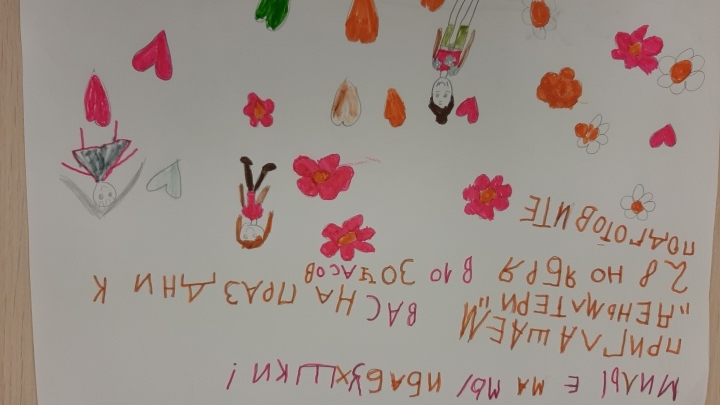 МИЛЫЕ МАМЫ И БАБУШКИ!
ПРИГЛАШАЕМ ВАС НА ПРАЗДНИК
"ДЕНЬ МАТЕРИ"
28 НОЯБРЯ В 10 30 ЧАСОВ
ПОДГОТОВИТЕ